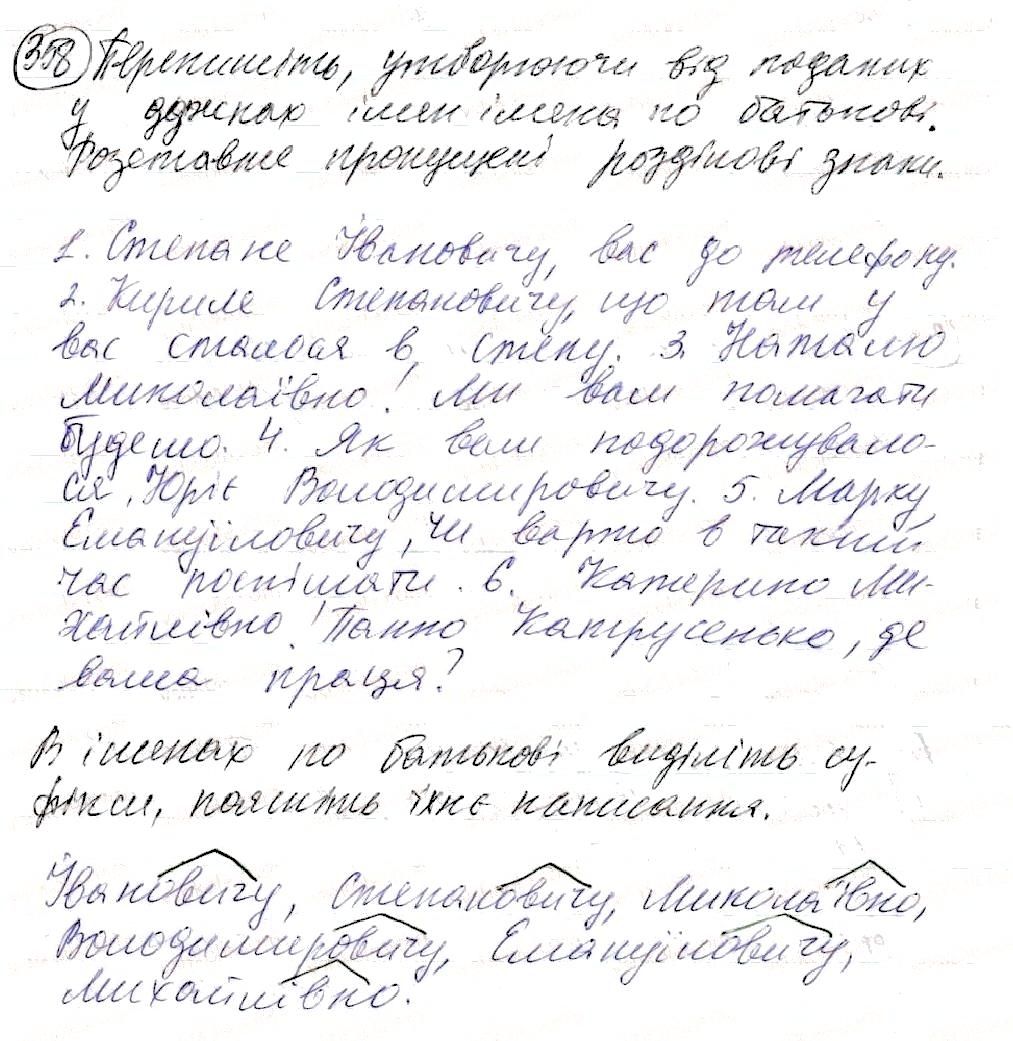 358 Перепишіть, утворюючи від поданих
у дужках імен імена по батькові.
Розставте пропущені розділові знаки.
1. Степане Івановичу, вас до телефону.
2. Кириле Степановичу, що там у
вас сталося в степу. 3. Наталю
Миколаївно! Ми вам помагати
будемо. 4. Як вам подорожувало-
ся, Юріє Володимировичу. 5. Марку
Емануїловичу, чи варто в такий
час поспішати. 6. Катерино Ми-
хайлівно! Панно Катрусенько, де
ваша праця?
В іменах по батькові виділіть су-
фікси, поясніть їхнє написання.
Івановичу, Степановичу, Миколаївно,
Володимировичу, Емануїловичу,
Михайлівно.